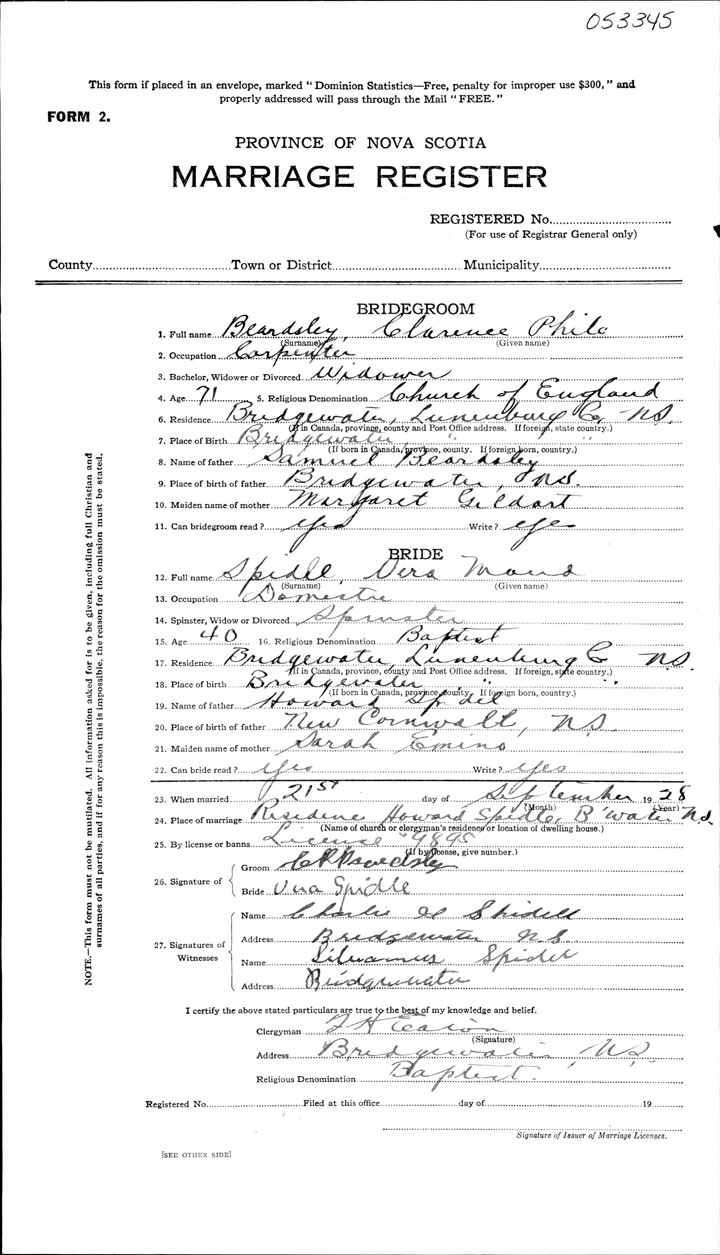 053345
This form if placed in an envelope, marked "Dominion Statistics—Free, penalty for improper use $300," and
properly addressed will pass through the Mail "FREE."
FORM 2.
PROVINCE OF NOVA SCOTIA
MARRIAGE REGISTER
REGISTERED No.
(For use of Registrar General only)
County Town or District Municipality
NOTE.—This form must not be mutilated. All information asked for is to be given, including full Christian and
surnames of all parties, and if for any reason this is impossible, the reason for the omission must be stated.
BRIDEGROOM
1. Full name Beardsley, Clarence Philo
(Surname) (Given name)
2. Occupation Carpenter
3. Bachelor, Widower or Divorced Widower
4. Age 71 5. Religious Denomination Church of England
6. Residence Bridgewater, Lunenburg Co, N.S.
(If in Canada, province, county and Post Office address. If foreign, state country.)
7. Place of Birth Bridgewater, " "
(If born in Canada, province, county. If foreign born, country.)
8. Name of father Samuel Beardsley
9. Place of birth of father Bridgewater, N.S.
10. Maiden name of mother Margaret Gildart
11. Can bridegroom read? yes Write? yes
BRIDE
12. Full name Spidle, Vera Maud
(Surname) (Given name)
13. Occupation Domestic
14. Spinster, Widow or Divorced Spinster
15. Age 40 16. Religious Denomination Baptist
17. Residence Bridgewater, Lunenburg Co N.S.
(If in Canada, province, county and Post Office address. If foreign, state country.)
18. Place of birth Bridgewater " "
(If born in Canada, province, county. If foreign born, country.)
19. Name of father Howard Spidel
20. Place of birth of father New Cornwall, N.S.
21. Maiden name of mother Sarah Emino
22. Can bride read? yes Write? yes
23. When married 21st day of September 1928
(Month) (Year)
24. Place of marriage Residence Howard Spidle, B'water N.S.
(Name of church or clergyman's residence or location of dwelling house.)
25. By license or banns License 9895
(If by license, give number.)
26. Signature of
Groom C P Beardsley
Bride Vera Spidle
27. Signatures of Witnesses
Name Charlie Spidell
Address Bridgewater N.S.
Name Silvanus Spidel
Address Bridgewater
I certify the above stated particulars are true to the best of my knowledge and belief.
Clergyman Eaton
(Signature)
Address Bridgewater, N.S.
Religious Denomination Baptist.
Registered No. Filed at this office day of 19
Signature of Issuer of Marriage Licenses.
[SEE OTHER SIDE]